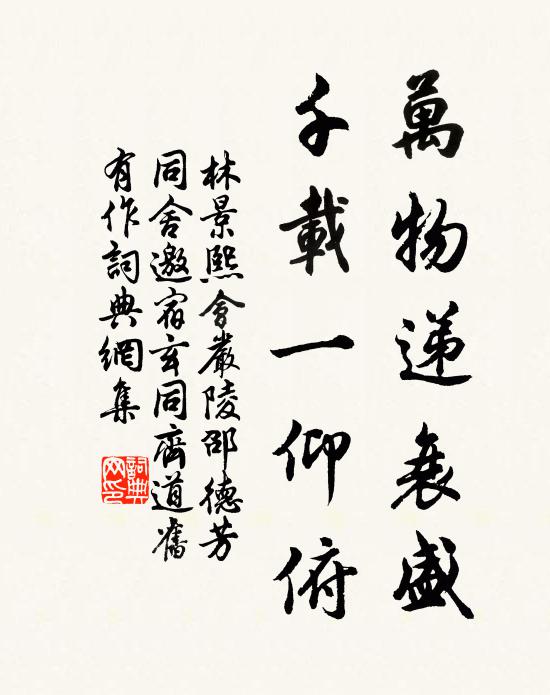 萬物递衰盛
千載一仰俯
林景熙會嚴陵邵德芳
同舍邀宿玄同齊道舊
有作詞典網集